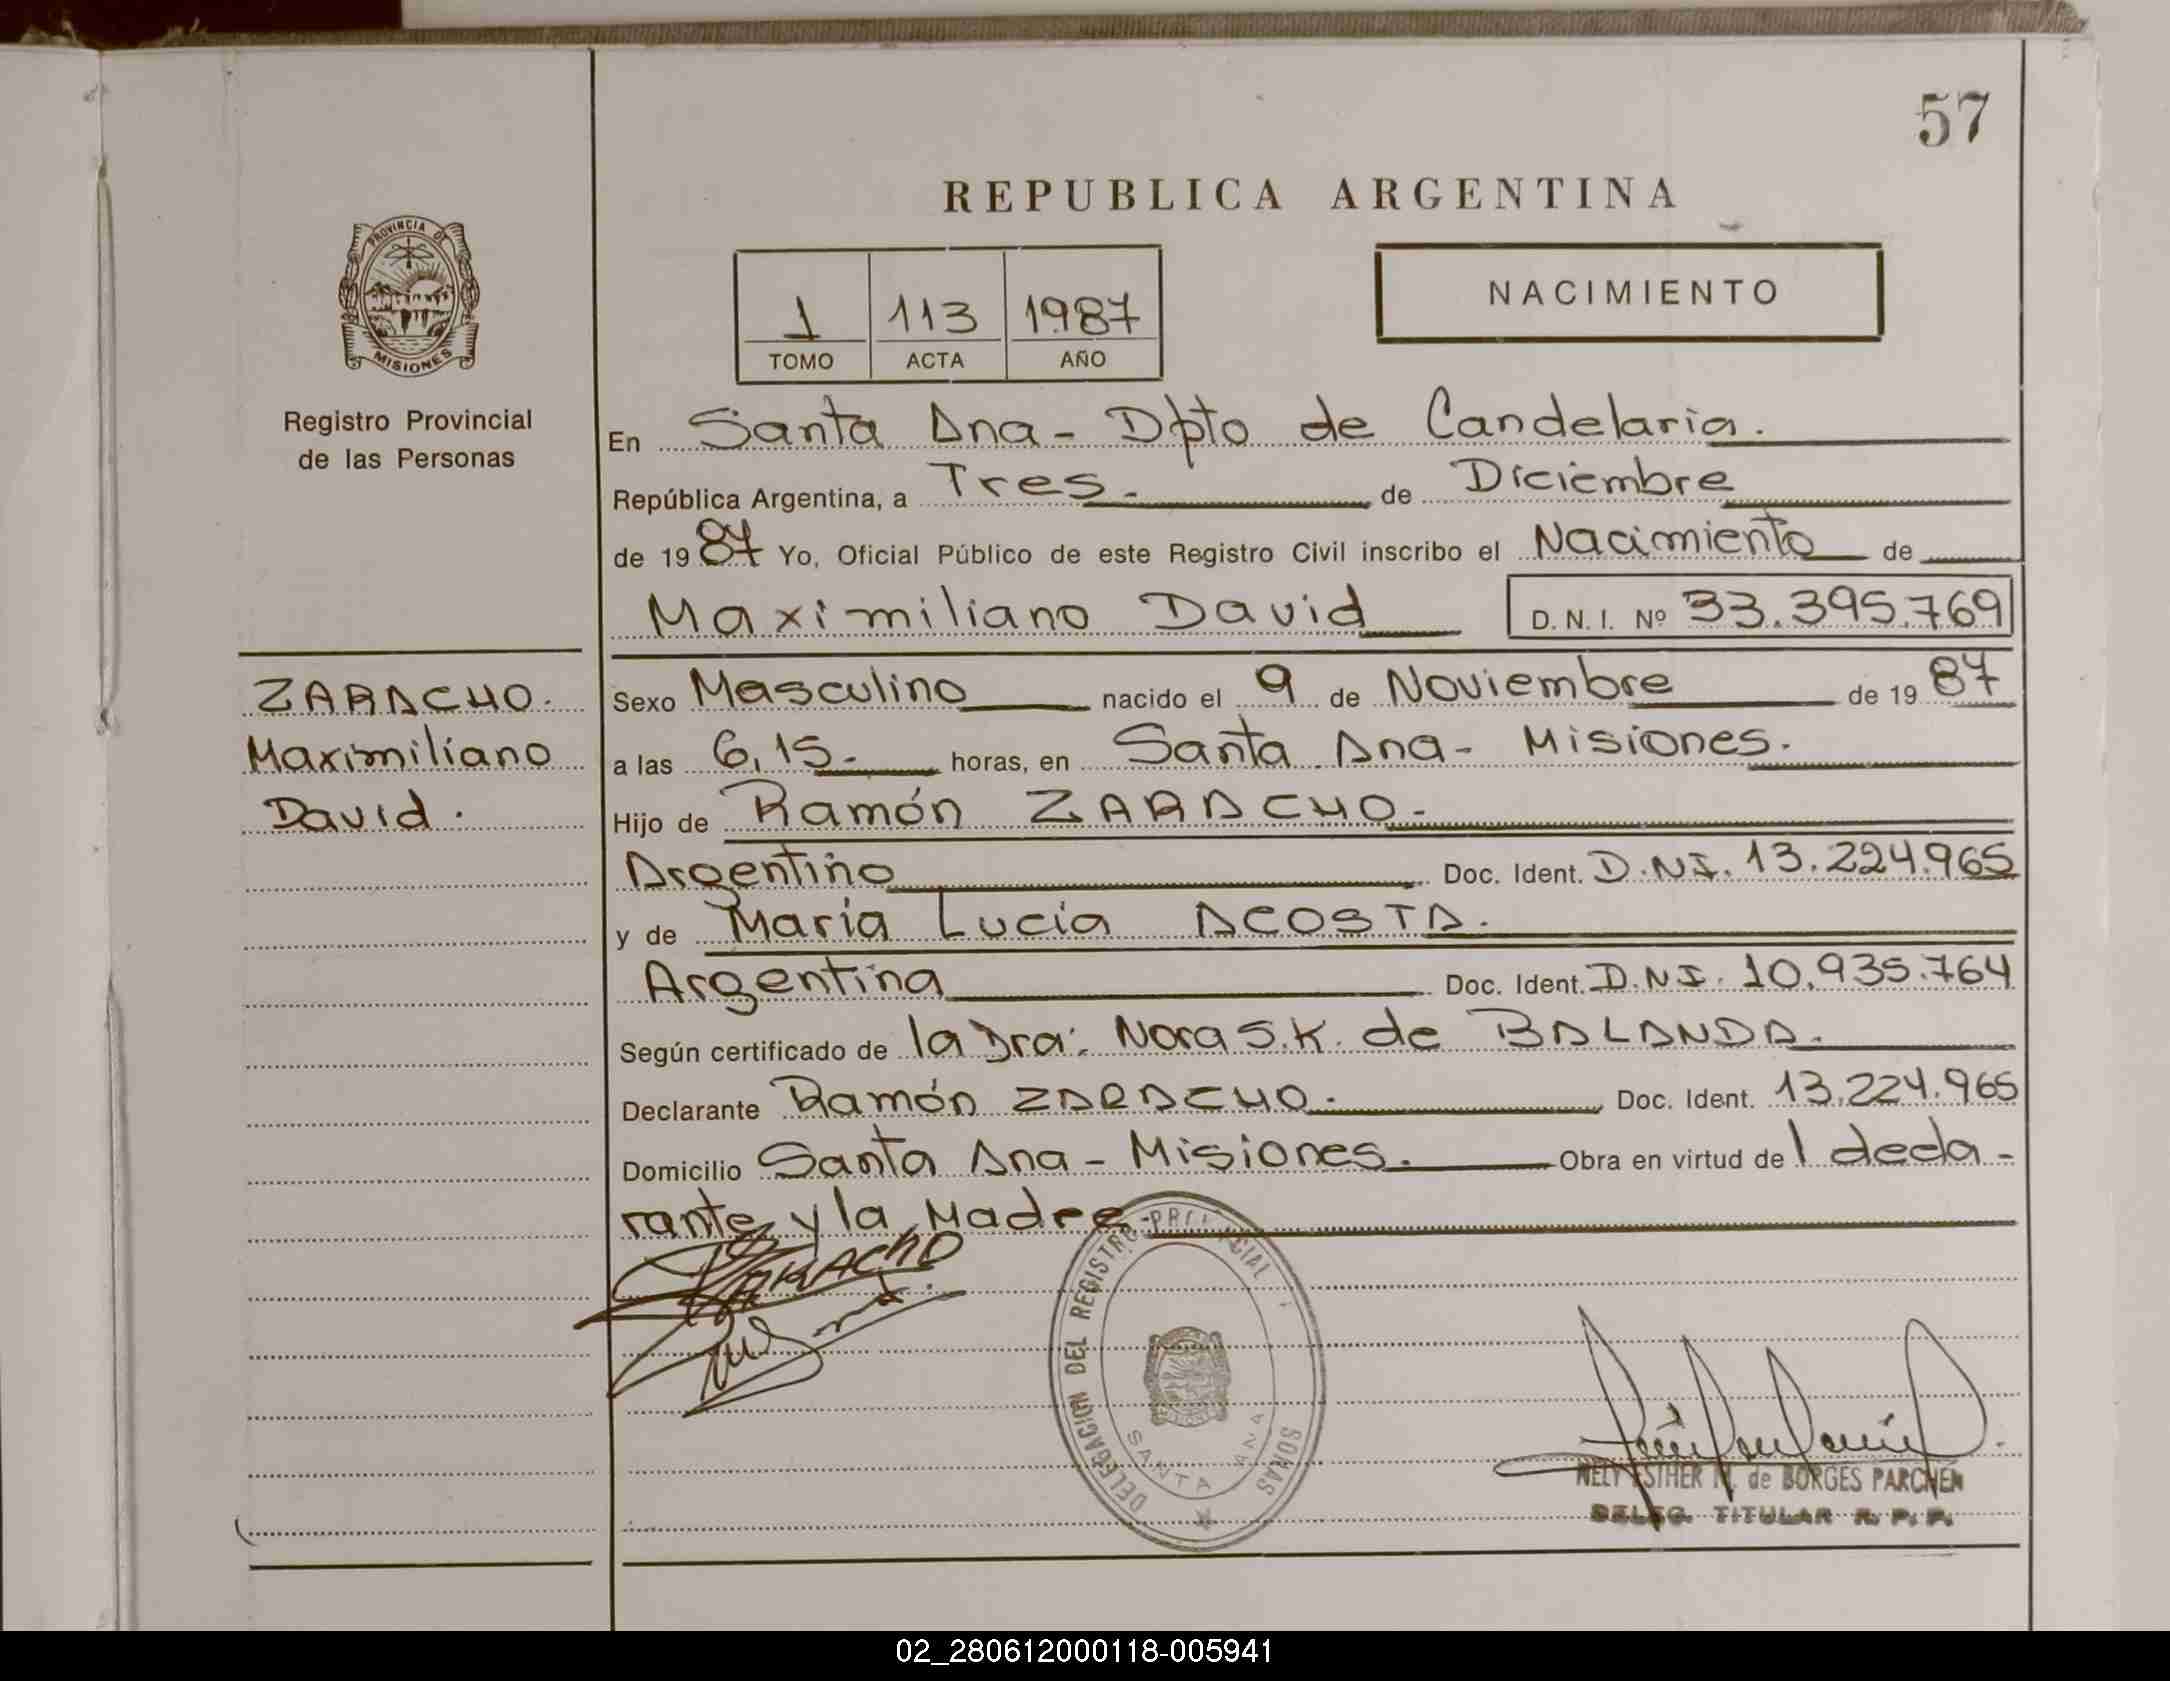 57
REPUBLICA ARGENTINA
PROVINCIA DE
MISIONES
Registro Provincial
de las Personas
1 113 1987
TOMO ACTA AÑO
NACIMIENTO
En Santa Ana - Dpto de Candelaria.
República Argentina, a Tres. de Diciembre
de 1987 Yo, Oficial Público de este Registro Civil inscribo el Nacimiento de
Maximiliano David D.N.I. Nº 33.395.769
ZARACHO.
Maximiliano
David.
Sexo Masculino nacido el 9 de Noviembre de 1987
a las 6,15. horas, en Santa Ana - Misiones.
Hijo de Ramón ZARACHO.
Argentino Doc. Ident. D.N.I. 13.224.965
y de María Lucía ACOSTA.
Argentina Doc. Ident. D.N.I. 10.935.764
Según certificado de la Dra: Nora S.K. de BALANDA.
Declarante Ramón ZARACHO. Doc. Ident. 13.224.965
Domicilio Santa Ana - Misiones. Obra en virtud de l decla-
rante y la Madre
ZARACHO
DELEGACION DEL REGISTRO PROVINCIAL
SANTA ANA
NELY ESTHER M. de BORGES PARCHEN
DELEG. TITULAR R. P. P.
02_280612000118-005941